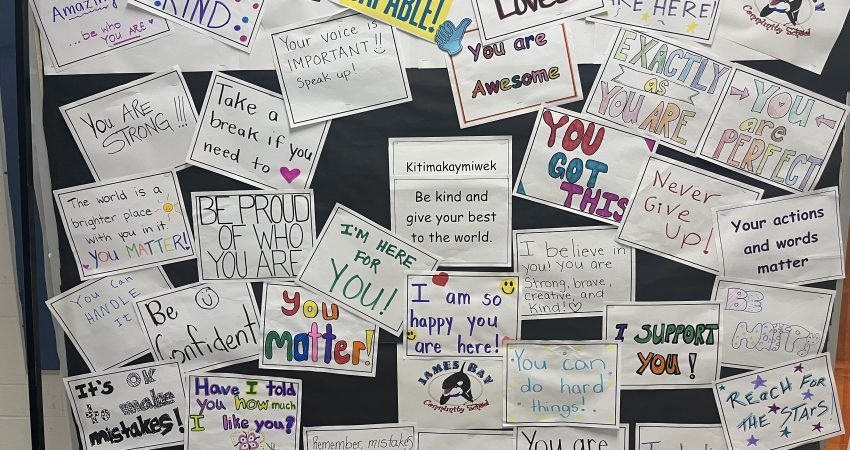 Amazing
...be who
you are♥
KIND
CAPABLE!
Loved
ARE HERE!
BAY
Community School
Your voice is
IMPORTANT!!
Speak up!
You are
Awesome
EXACTLY
as
YOU ARE
YOU
are
PERFECT
YOU ARE
STRONG!!!
Take a
break if you
need to
Kitimakaymiwek
Be kind and
give your best
to the world.
YOU
GOT
THIS
Never
Give
Up!
The world is a
brighter place
with you in it.
YOU MATTER!
BE PROUD
OF WHO
YOU ARE
I'M HERE
FOR
YOU!
I believe in
you! you are
strong, brave,
creative, and
kind!♡
Your actions
and words
matter
You Can
HANDLE
It
Be
Confident
you
matter!
I am so
happy you
are here!
I SUPPORT
YOU!
BE
HAPPY
It's OK
to make
mistakes!
Have I told
you how much
I like you?
JAMES BAY
Community School
You can
do hard
things!
REACH FOR
THE STARS
Remember, mistakes
You are